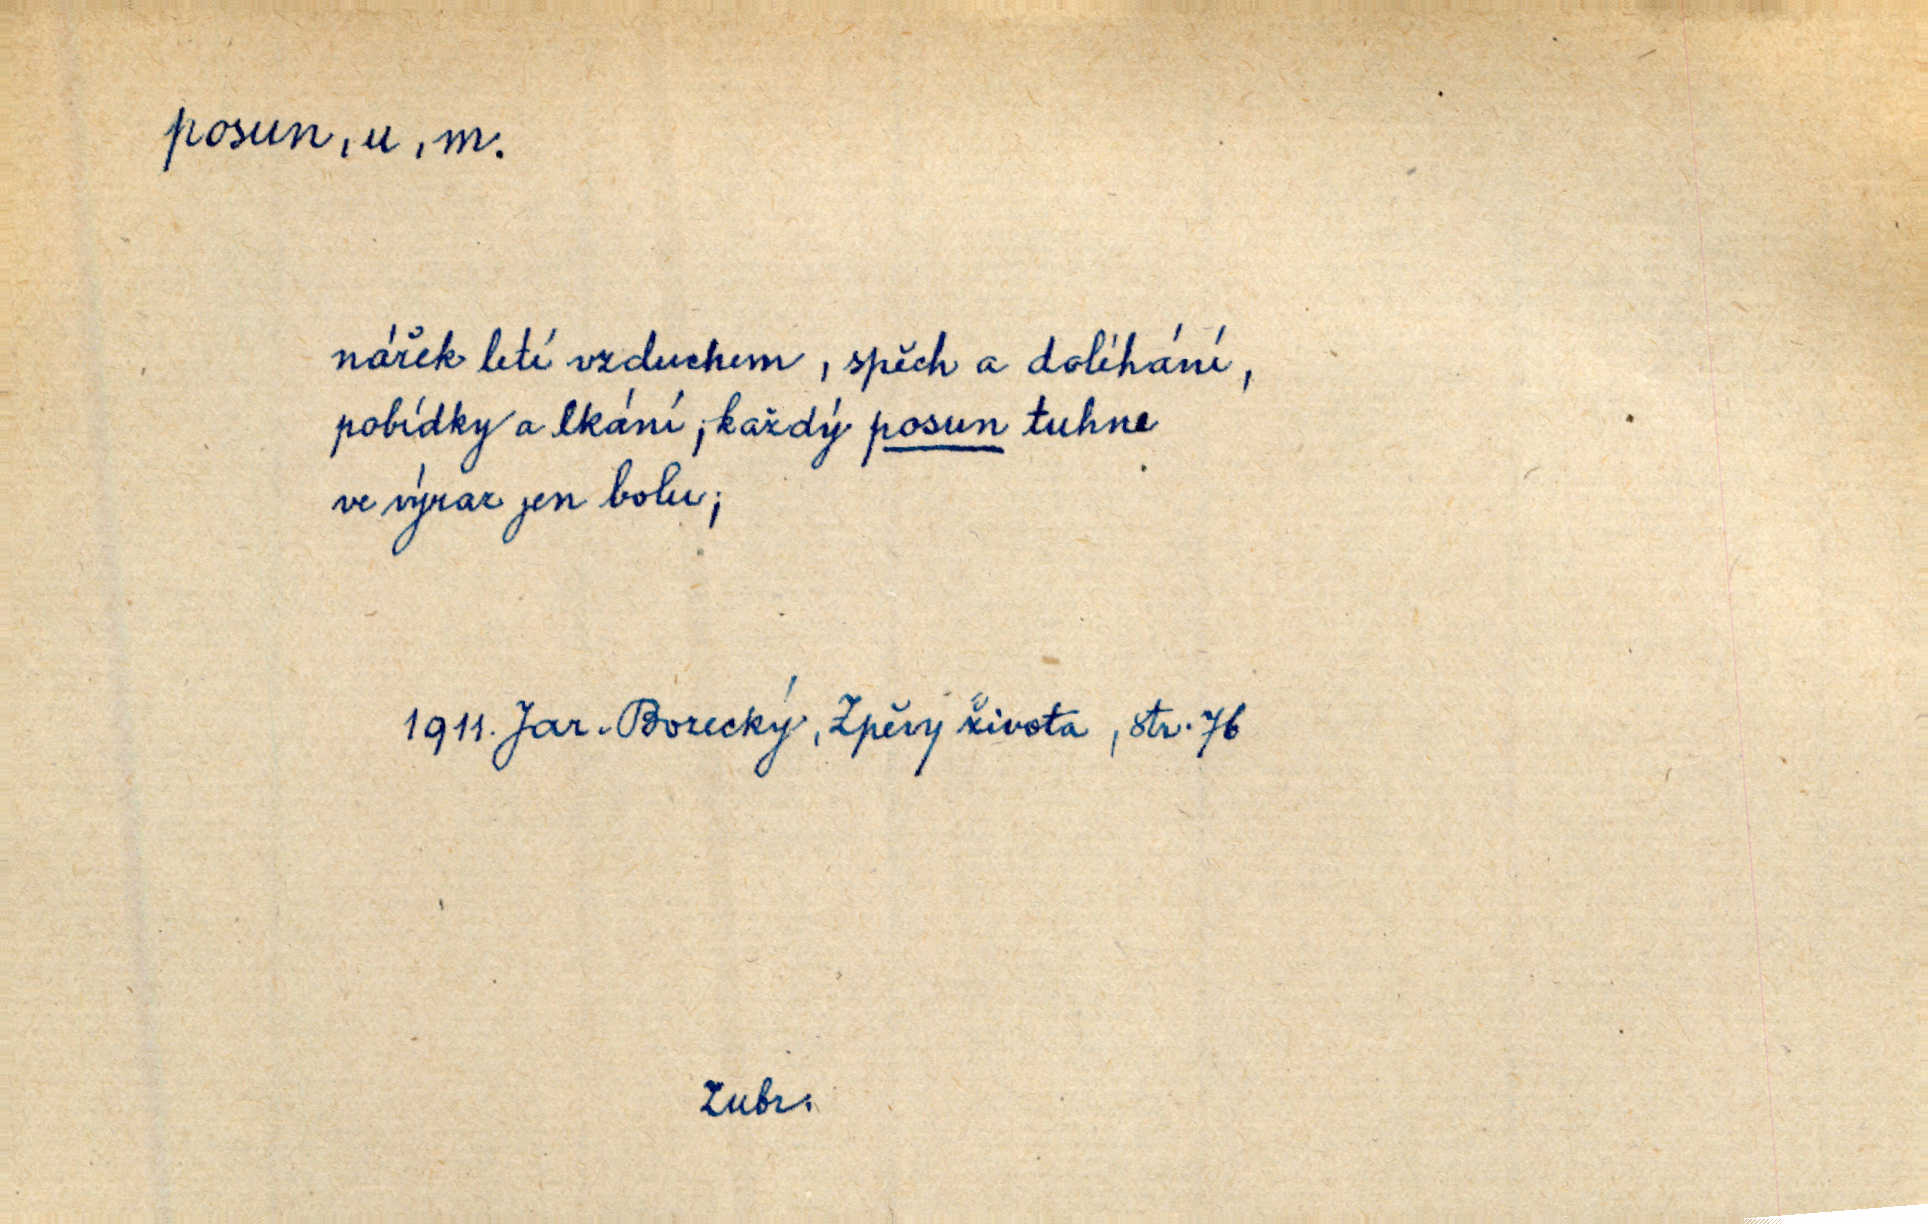 posun, u, m.
nářek letí vzduchem, spěch a doléhání,
pobídky a lkání; každý posun tuhne
ve výraz jen bolu;
1911. Jar. Borecký, Zpěvy života, str. 76
Zubr.